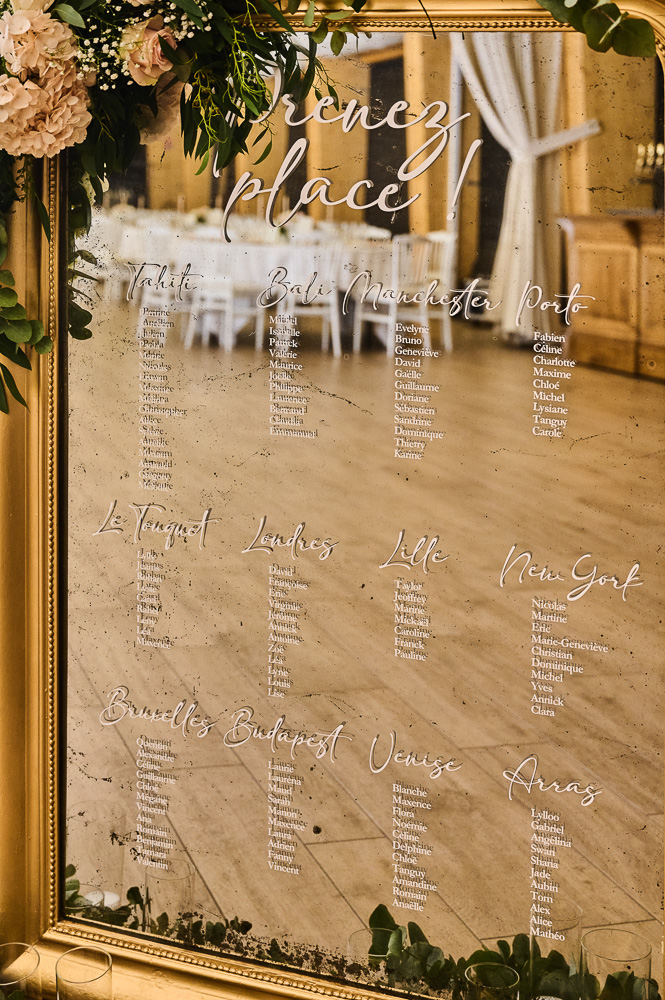 Prenez
place !
Tahiti
Perrine
Aurélien
Julien
Nicolas
Erwin
Maxime
Mélina
Christopher
Alice
Amélie
Myriam
Arnauld
Grégory
Marjorie
Bali
Muriel
Isabelle
Patrick
Valérie
Maurice
Joëlle
Philippe
Laurence
Bertrand
Claudia
Emmanuel
Manchester
Evelyne
Bruno
Geneviève
David
Gaëlle
Guillaume
Doriane
Sébastien
Sandrine
Dominique
Thierry
Karine
Porto
Fabien
Céline
Charlotte
Maxime
Chloé
Michel
Lysiane
Tanguy
Carole
Le Touquet
Maxence
Londres
David
Françoise
Eric
Virginie
Jérôme
Annick
Antoine
Zoé
Léa
Lyne
Louis
Lise
Lille
Taylor
Jeoffrey
Marine
Mickaël
Caroline
Franck
Pauline
New York
Nicolas
Martine
Eric
Marie-Geneviève
Christian
Dominique
Michel
Yves
Annick
Clara
Bruxelles
Quentin
Alexandre
Guillaume
Chloé
Mégane
Vincent
Benjamin
Valentin
Budapest
Laurie
Laurène
Maud
Sarah
Manon
Maxence
Adrien
Fanny
Vincent
Venise
Blanche
Maxence
Flora
Noémie
Céline
Delphine
Chloé
Tanguy
Amandine
Romain
Anaëlle
Arras
Lylloo
Gabriel
Angélina
Swan
Sharia
Jade
Aubin
Tom
Alex
Alice
Mathéo